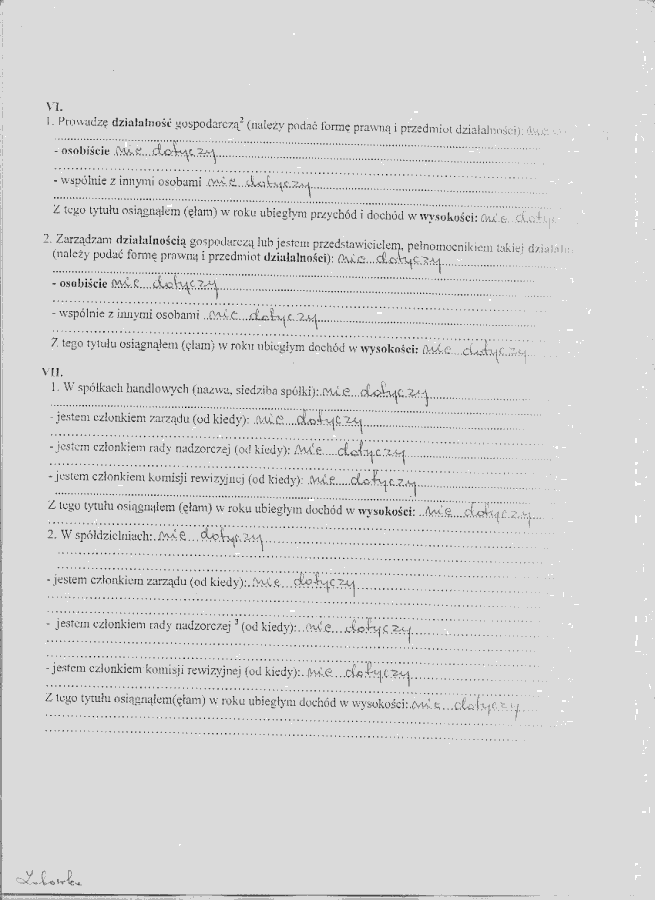 VI.
1. Prowadzę działalność gospodarczą² (należy podać formę prawną i przedmiot działalności): nie
- osobiście nie dotyczy
- wspólnie z innymi osobami nie dotyczy
Z tego tytułu osiągnąłem (ęłam) w roku ubiegłym przychód i dochód w wysokości: nie doty
2. Zarządzam działalnością gospodarczą lub jestem przedstawicielem, pełnomocnikiem takiej działaln
(należy podać formę prawną i przedmiot działalności): nie dotyczy
- osobiście nie dotyczy
- wspólnie z innymi osobami nie dotyczy
Z tego tytułu osiągnąłem (ęłam) w roku ubiegłym dochód w wysokości: nie dotyczy
VII.
1. W spółkach handlowych (nazwa, siedziba spółki): nie dotyczy
- jestem członkiem zarządu (od kiedy): nie dotyczy
- jestem członkiem rady nadzorczej (od kiedy): nie dotyczy
- jestem członkiem komisji rewizyjnej (od kiedy): nie dotyczy
Z tego tytułu osiągnąłem (ęłam) w roku ubiegłym dochód w wysokości: nie dotyczy
2. W spółdzielniach: nie dotyczy
- jestem członkiem zarządu (od kiedy): nie dotyczy
- jestem członkiem rady nadzorczej ³ (od kiedy): nie dotyczy
- jestem członkiem komisji rewizyjnej (od kiedy): nie dotyczy
Z tego tytułu osiągnąłem(ęłam) w roku ubiegłym dochód w wysokości: nie dotyczy